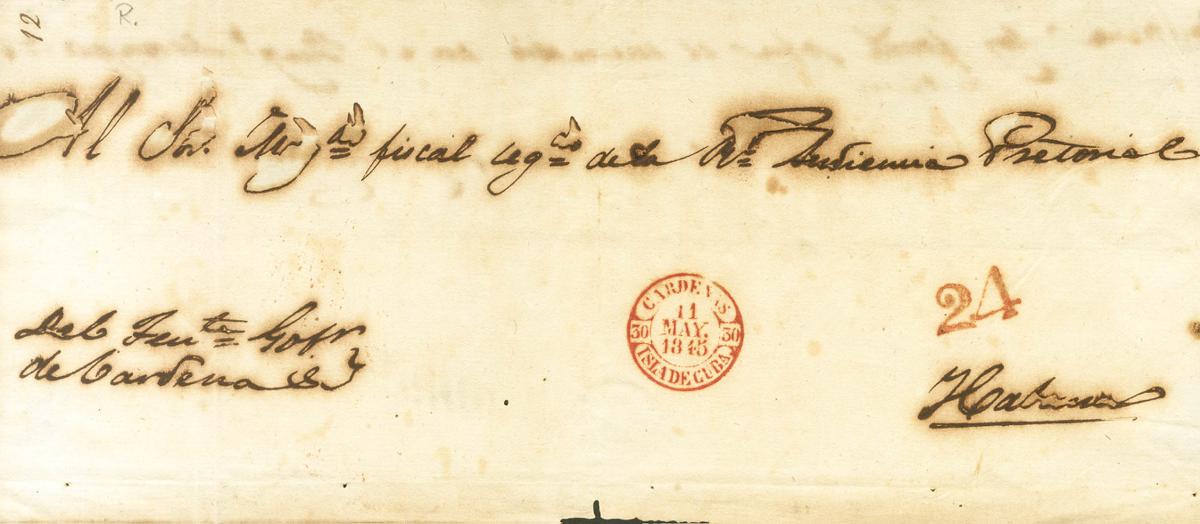 12
R.
Al Sôr. fiscal seg.do de la R.l Audiencia Pretorial
Del Ten.te Gob.r
de Cardenas
CARDENAS
11
MAY.
1845
30 30
ISLA DE CUBA
24
Habana